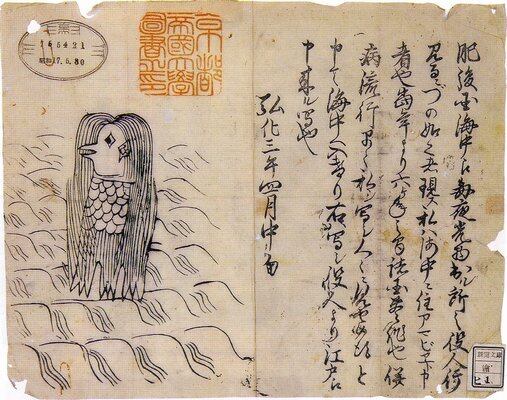 肥後国海中江毎夜光物出ル所之役人行
見るニづの如之者現ス私ハ海中ニ住アマビヱト申
者也当年より六ヶ年之間諸国豊作也併
病流行早々私シ写シ人々ニ見せ候得と
申て海中へ入けり右写シ役人より江戸江
申来ル写也
弘化三年四月中旬
京都
帝國大學
圖書之印
165421
昭和17.5.30
新聞文庫